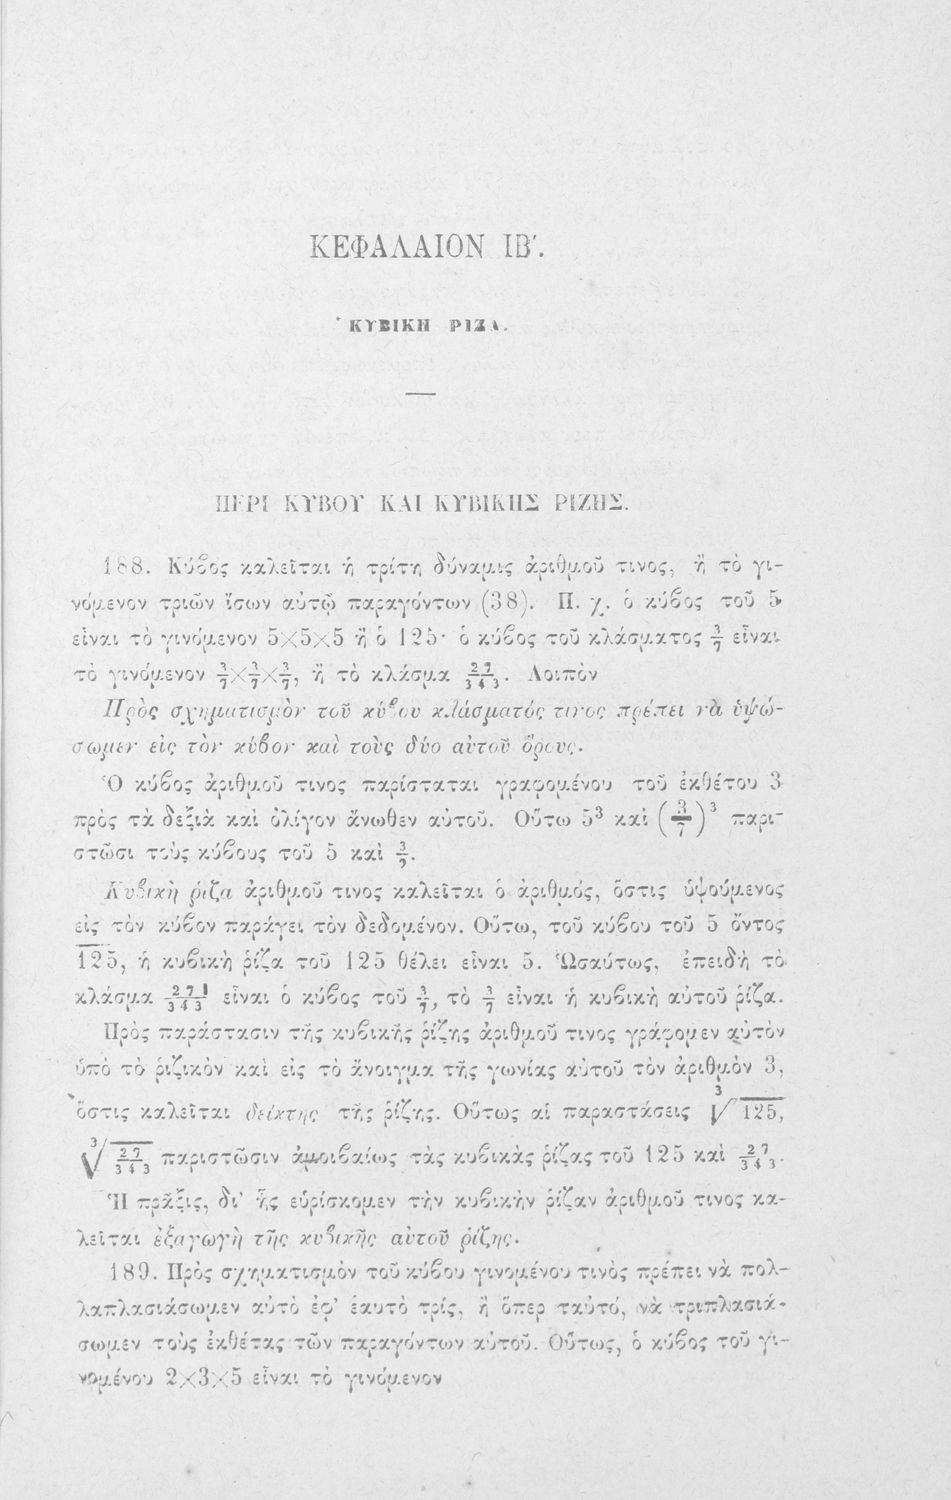 ΚΕΦΑΛΑΙΟΝ ΙΒ′.
ΚΥΒΙΚΗ ΡΙΖΑ.
ΠΕΡΙ ΚΥΒΟΥ ΚΑΙ ΚΥΒΙΚΗΣ ΡΙΖΗΣ.
188. Κύϐος καλεῖται ἡ τρίτη δύναμις ἀριθμοῦ τινος, ἢ τὸ γι-
νόμενον τριῶν ἴσων αὐτῷ παραγόντων (38). Π. χ. ὁ κύϐος τοῦ 5
εἶναι τὸ γινόμενον 5×5×5 ἢ ὁ 125· ὁ κύϐος τοῦ κλάσματος 3/7 εἶναι
τὸ γινόμενον 3/7×3/7×3/7, ἢ τὸ κλάσμα 27/343. Λοιπὸν
Πρὸς σχηματισμὸν τοῦ κύϐου κλάσματός τινος πρέπει νὰ ὑψώ-
σωμεν εἰς τὸν κύϐον καὶ τοὺς δύο αὐτοῦ ὅρους.
Ὁ κύϐος ἀριθμοῦ τινος παρίσταται γραφομένου τοῦ ἐκθέτου 3
πρὸς τὰ δεξιὰ καὶ ὀλίγον ἄνωθεν αὐτοῦ. Οὕτω 5³ καὶ (3/7)³ παρι-
στῶσι τοὺς κύϐους τοῦ 5 καὶ 3/7.
Κυϐικὴ ῥίζα ἀριθμοῦ τινος καλεῖται ὁ ἀριθμός, ὅστις ὑψούμενος
εἰς τὸν κύϐον παράγει τὸν δεδομένον. Οὕτω, τοῦ κύϐου τοῦ 5 ὄντος
125, ἡ κυϐικὴ ῥίζα τοῦ 125 θέλει εἶναι 5. Ὡσαύτως, ἐπειδὴ τὸ
κλάσμα 27/343 εἶναι ὁ κύϐος τοῦ 3/7, τὸ 3/7 εἶναι ἡ κυϐικὴ αὐτοῦ ῥίζα.
Πρὸς παράστασιν τῆς κυϐικῆς ῥίζης ἀριθμοῦ τινος γράφομεν αὐτὸν
ὑπὸ τὸ ῥιζικὸν καὶ εἰς τὸ ἄνοιγμα τῆς γωνίας αὐτοῦ τὸν ἀριθμὸν 3,
ὅστις καλεῖται δείκτης τῆς ῥίζης. Οὕτως αἱ παραστάσεις ∛125,
∛27/343 παριστῶσιν ἀμοιϐαίως τὰς κυϐικὰς ῥίζας τοῦ 125 καὶ 27/343.
Ἡ πρᾶξις, δι' ἧς εὑρίσκομεν τὴν κυϐικὴν ῥίζαν ἀριθμοῦ τινος κα-
λεῖται ἐξαγωγὴ τῆς κυϐικῆς αὐτοῦ ῥίζης.
189. Πρὸς σχηματισμὸν τοῦ κύϐου γινομένου τινὸς πρέπει νὰ πολ-
λαπλασιάσωμεν αὐτὸ ἐφ' ἑαυτὸ τρίς, ἢ ὅπερ ταὐτό, νὰ τριπλασιά-
σωμεν τοὺς ἐκθέτας τῶν παραγόντων αὐτοῦ. Οὕτως, ὁ κύϐος τοῦ γι-
νομένου 2×3×5 εἶναι τὸ γινόμενον